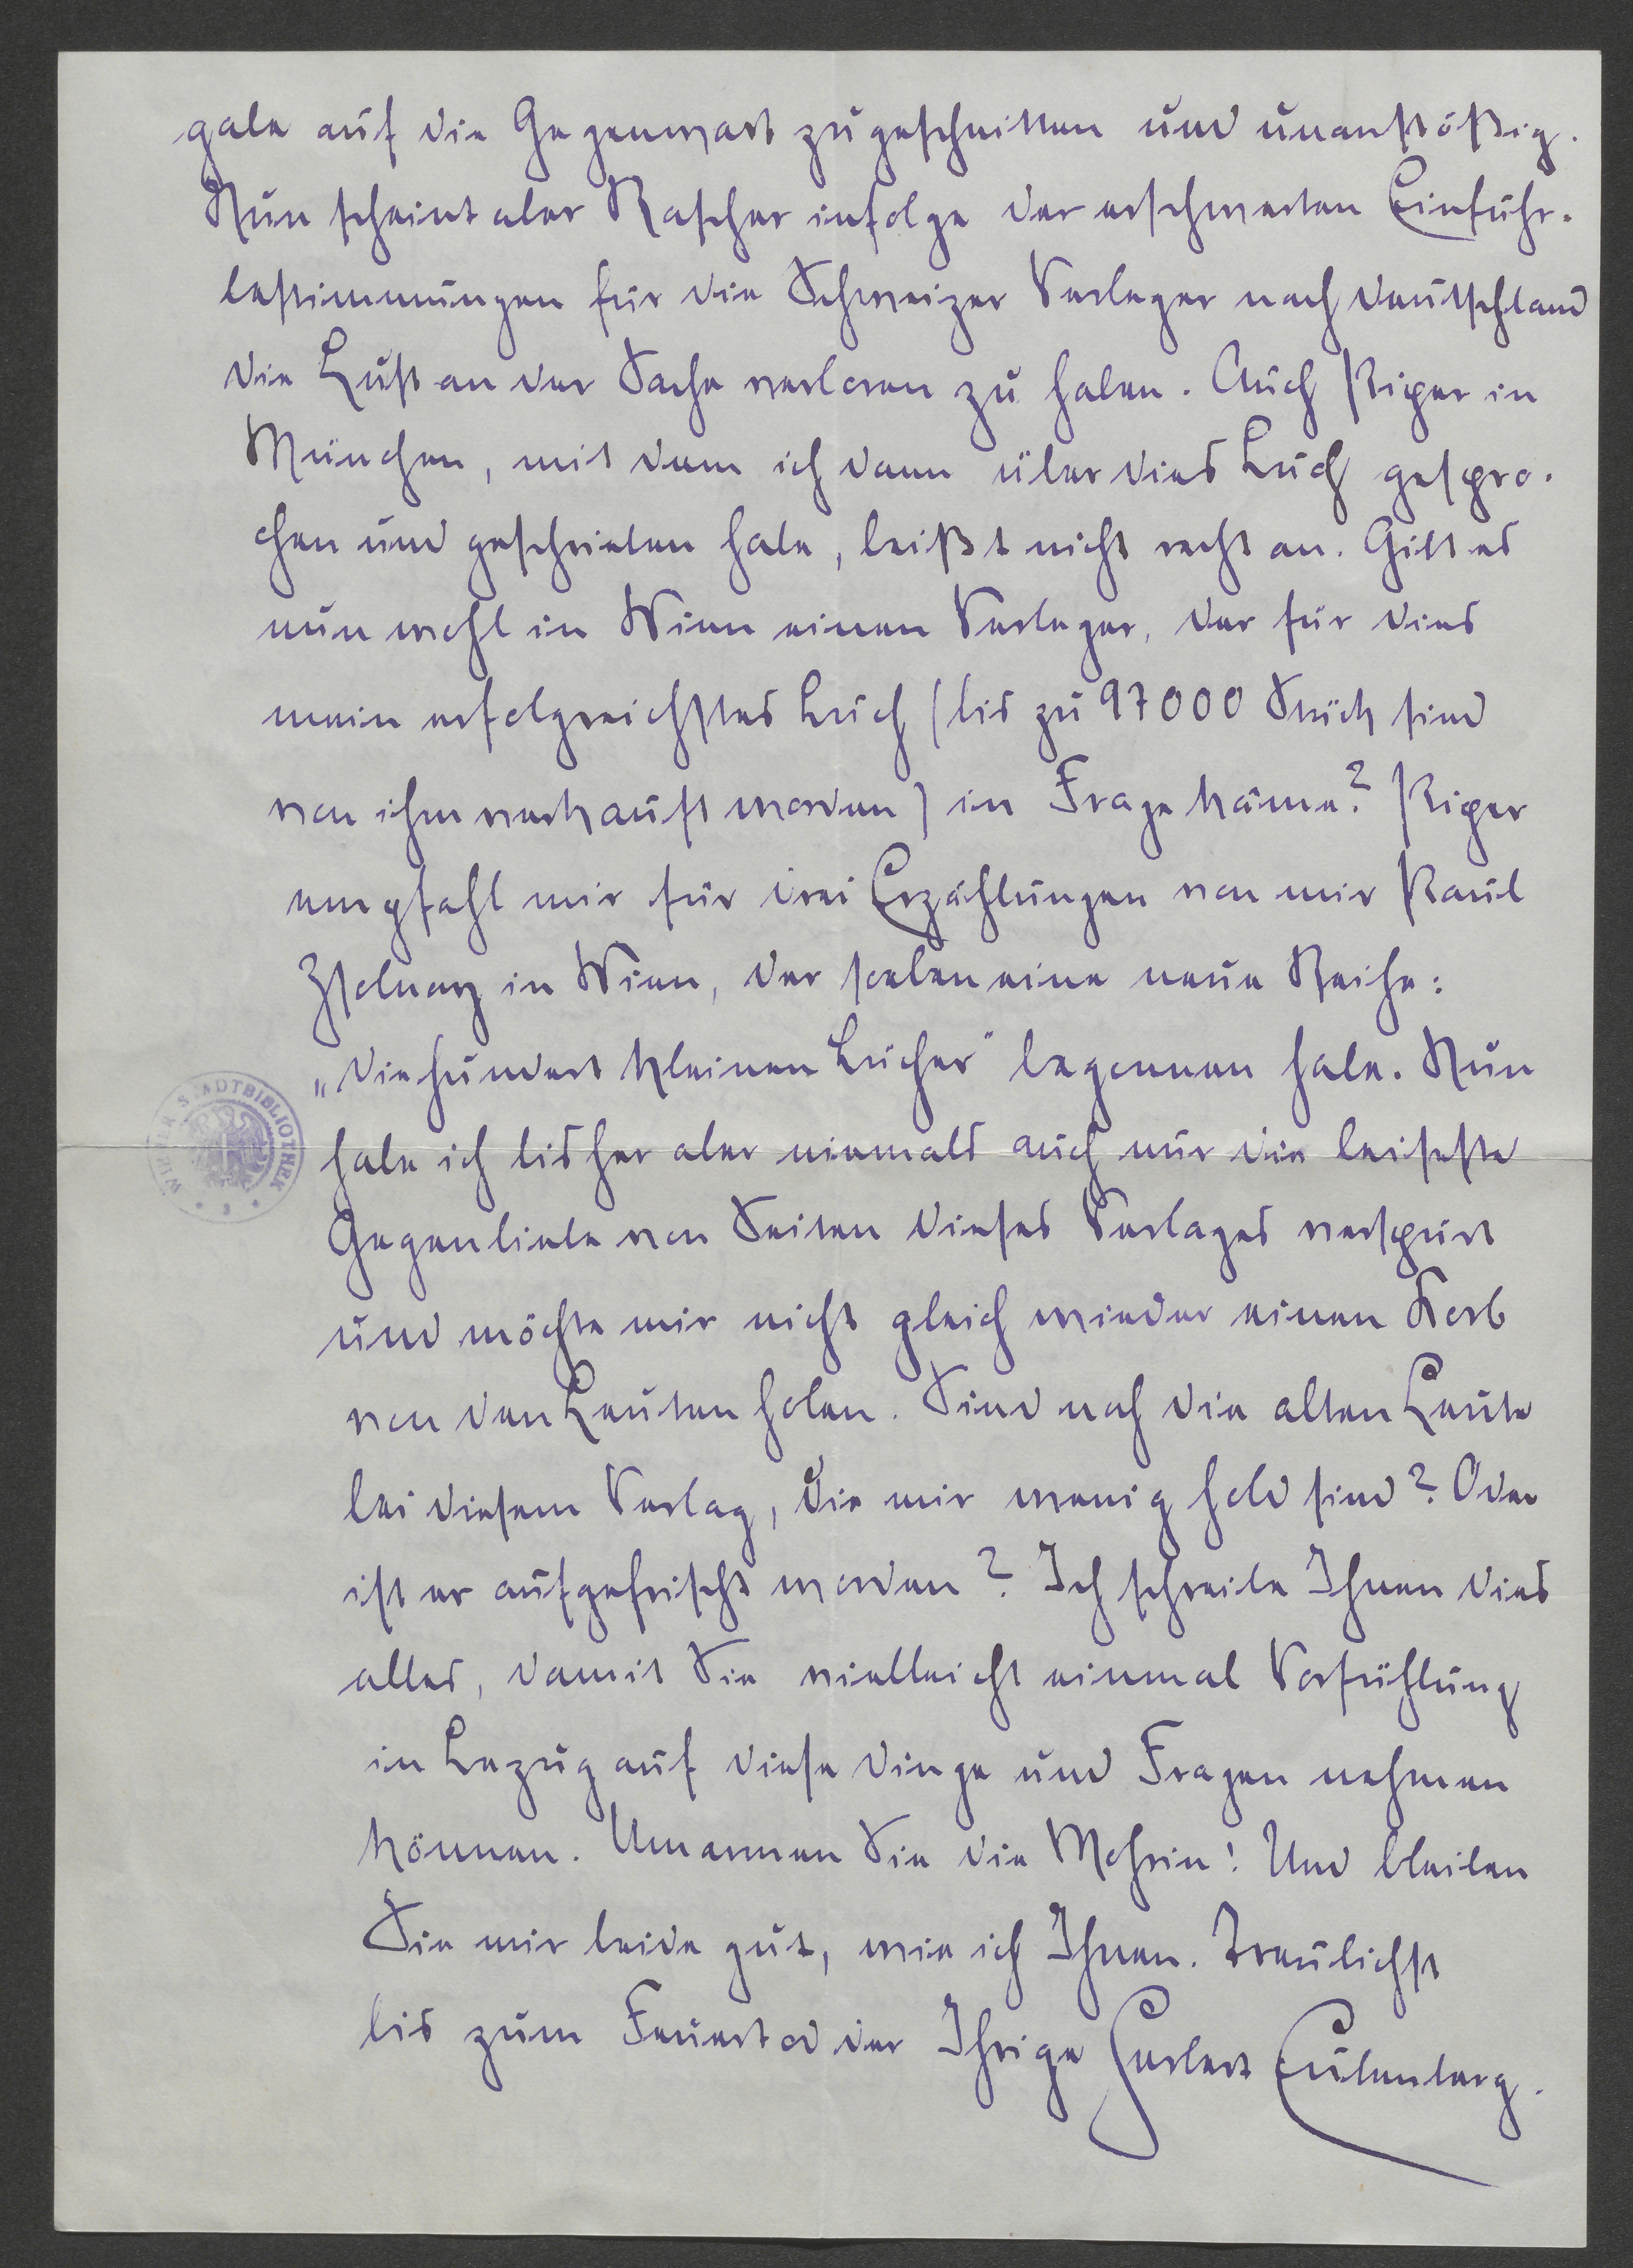 gabe auf die Gegenwart zugeschnitten und unanstößig.
Nun scheint aber Rascher infolge der erschwerten Einfuhr-
bestimmungen für die Schweizer Verleger nach Deutschland
die Lust an der Sache verloren zu haben. Auch Piper in
München, mit dem ich dann über dies Buch gespro-
chen und geschrieben habe, beißt nicht recht an. Gibt es
nun wohl in Wien einen Verleger, der für dies
mein erfolgreichstes Buch (bis zu 97000 Stück sind
von ihm verkauft worden) in Frage käme? Piper
empfahl mir für drei Erzählungen von mir Paul
Zsolnay in Wien, der soeben eine neue Reihe:
„Die hundert kleinen Bücher" begonnen habe. Nun
habe ich bisher aber niemals auch nur die leiseste
Gegenliebe von Seiten dieses Verlages verspürt
und möchte mir nicht gleich wieder einen Korb
von den Leuten holen. Sind noch die alten Leute
bei diesem Verlag, die mir wenig hold sind? Oder
ist er aufgefrischt worden? Ich schreibe Ihnen dies
alles, damit Sie vielleicht einmal Vorfühlung
in Bezug auf diese Dinge und Fragen nehmen
können. Umarmen Sie die Mohrin! Und bleiben
Sie mir beide gut, wie ich Ihnen. Treulichst
bis zum Feuertod der Ihrige Herbert Eulenberg.
WIENER STADTBIBLIOTHEK